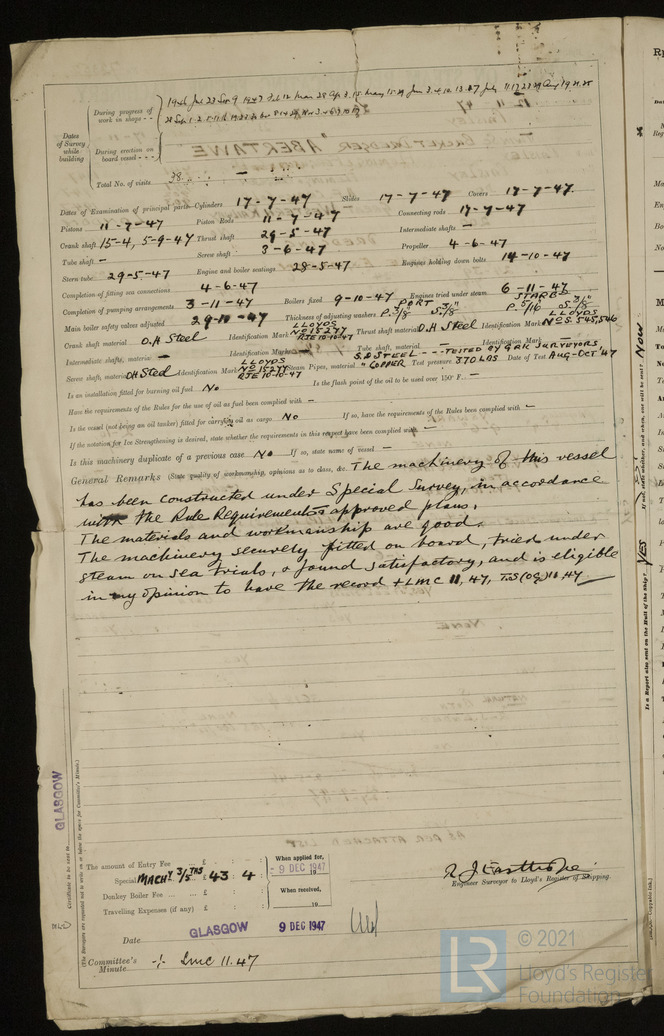 Dates of Survey while building
During progress of work in shops - -
1946 Jul 23 Sep 9 1947 Feb 12 Mar 28 Apr 3. 15 May 15. 29 Jun 3. 4. 10. 13. 27 July 11. 17. 23. 29 Aug 19. 21. 25
During erection on board vessel - - -
Total No. of visits 38
Dates of Examination of principal parts—Cylinders 17-7-47 Slides 17-7-47 Covers 17-7-47
Pistons 11-7-47 Piston Rods 11-7-47 Connecting rods 17-7-47
Crank shaft 15-4, 5-9-47 Thrust shaft 29-5-47 Intermediate shafts —
Tube shaft — Screw shaft 3-6-47 Propeller 4-6-47
Stern tube 29-5-47 Engine and boiler seatings 28-5-47 Engines holding down bolts 14-10-47
Completion of fitting sea connections 4-6-47
Completion of pumping arrangements 3-11-47 Boilers fixed 9-10-47 Engines tried under steam 6-11-47
Main boiler safety valves adjusted 29-10-47 Thickness of adjusting washers PORT P. 3/8 S. 3/8" STARBD P. 5/16 S. 3/8"
Crank shaft material O.H Steel Identification Mark LLOYDS No 15277 RJE 10-10-47 Thrust shaft material O.H Steel Identification Mark LLOYDS Nos 545,546
Intermediate shafts, material — Identification Marks — Tube shaft, material — Identification Mark —
Screw shaft, material OH Steel Identification Mark LLOYDS No 15277 RJE 10-10-47 Steam Pipes, material S.D STEEL - - - TESTED BY GRK SURVEYORS " COPPER Test pressure 370 LBS Date of Test AUG-OCT '47
Is an installation fitted for burning oil fuel No Is the flash point of the oil to be used over 150° F. —
Have the requirements of the Rules for the use of oil as fuel been complied with —
Is the vessel (not being an oil tanker) fitted for carrying oil as cargo No If so, have the requirements of the Rules been complied with —
If the notation for Ice Strengthening is desired, state whether the requirements in this respect have been complied with —
Is this machinery duplicate of a previous case No If so, state name of vessel —
General Remarks (State quality of workmanship, opinions as to class, &c. The machinery of this vessel
has been constructed under Special Survey, in accordance
with the Rule Requirements approved plans.
The materials and workmanship are good.
The machinery securely fitted on board, tried under
steam on sea trials, & found satisfactory, and is eligible
in my opinion to have the record + LMC 11, 47, T.S(OG) 11 47
GLASGOW
Certificate to be sent to
(The Surveyors are requested not to write on or below the space for Committee's Minute.)
The amount of Entry Fee £ : :
Special MACHY 3/5THS £ 43 : 4 :
Donkey Boiler Fee £ : :
Travelling Expenses (if any) £ : :
When applied for,
- 9 DEC 1947
When received,
19
Engineer Surveyor to Lloyd's Register of Shipping.
Date GLASGOW 9 DEC 1947
Committee's Minute + LMC 11.47
Is a Report also sent on the Hull of the Ship? YES
If not, state whether, and when, one will be sent? Now
LR
© 2021
Lloyd's Register
Foundation